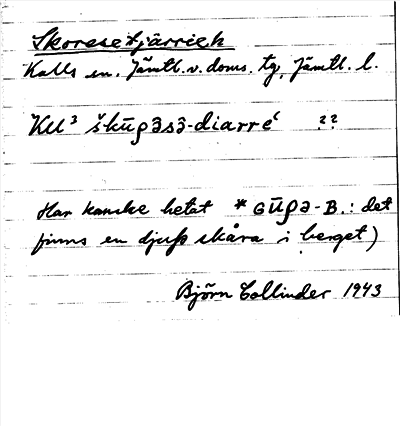 Skoresetjärrieh
Kalls sn. Jämtl. v. doms. tg, Jämtl. l.
KU³ škūρəsə̑-diarre‘ ??
Har kanske hetat *Gūρə-B.: det
finns en djup skåra i berget)
Björn Collinder 1943